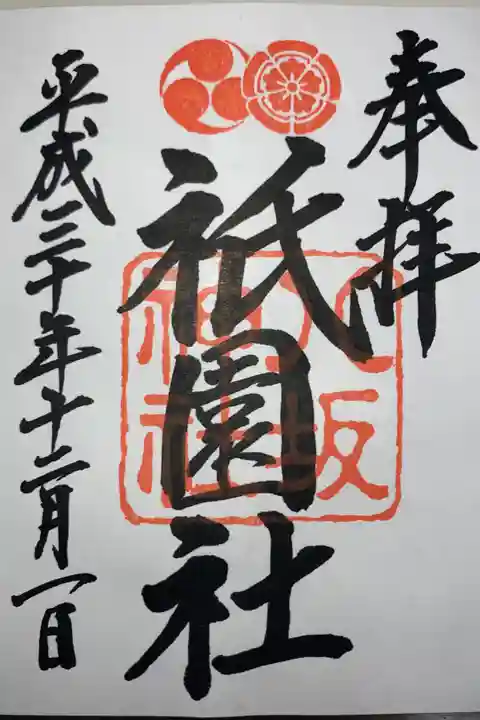 奉拝
八坂
神社
祇園社
平成三十年十二月一日